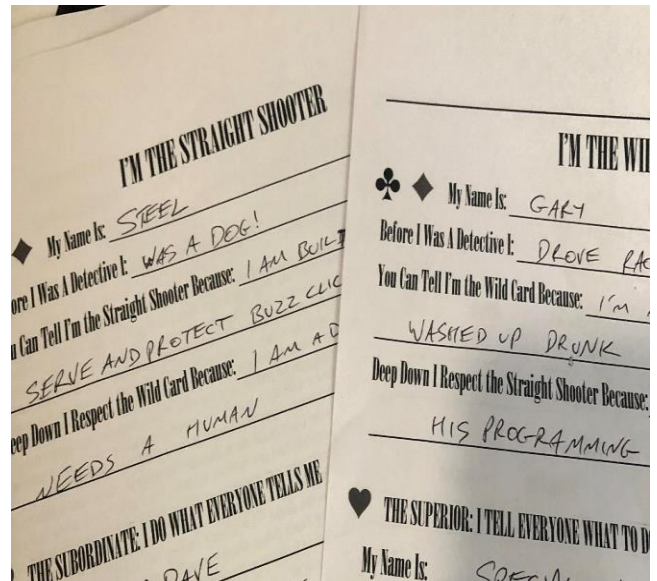 I'M THE STRAIGHT SHOOTER
My Name Is: STEEL
ore I Was A Detective I: WAS A DOG!
u Can Tell I'm the Straight Shooter Because: I AM BUILT
SERVE AND PROTECT BUZZ CLIC
eep Down I Respect the Wild Card Because: I AM A D
NEEDS A HUMAN
THE SUBORDINATE: I DO WHAT EVERYONE TELLS ME
DAVE
I'M THE WIL
My Name Is: GARY
Before I Was A Detective I: DROVE RAC
You Can Tell I'm the Wild Card Because: I'M
WASHED UP DRUNK
Deep Down I Respect the Straight Shooter Because:
HIS PROGRAMMING
THE SUPERIOR: I TELL EVERYONE WHAT TO D
My Name Is: